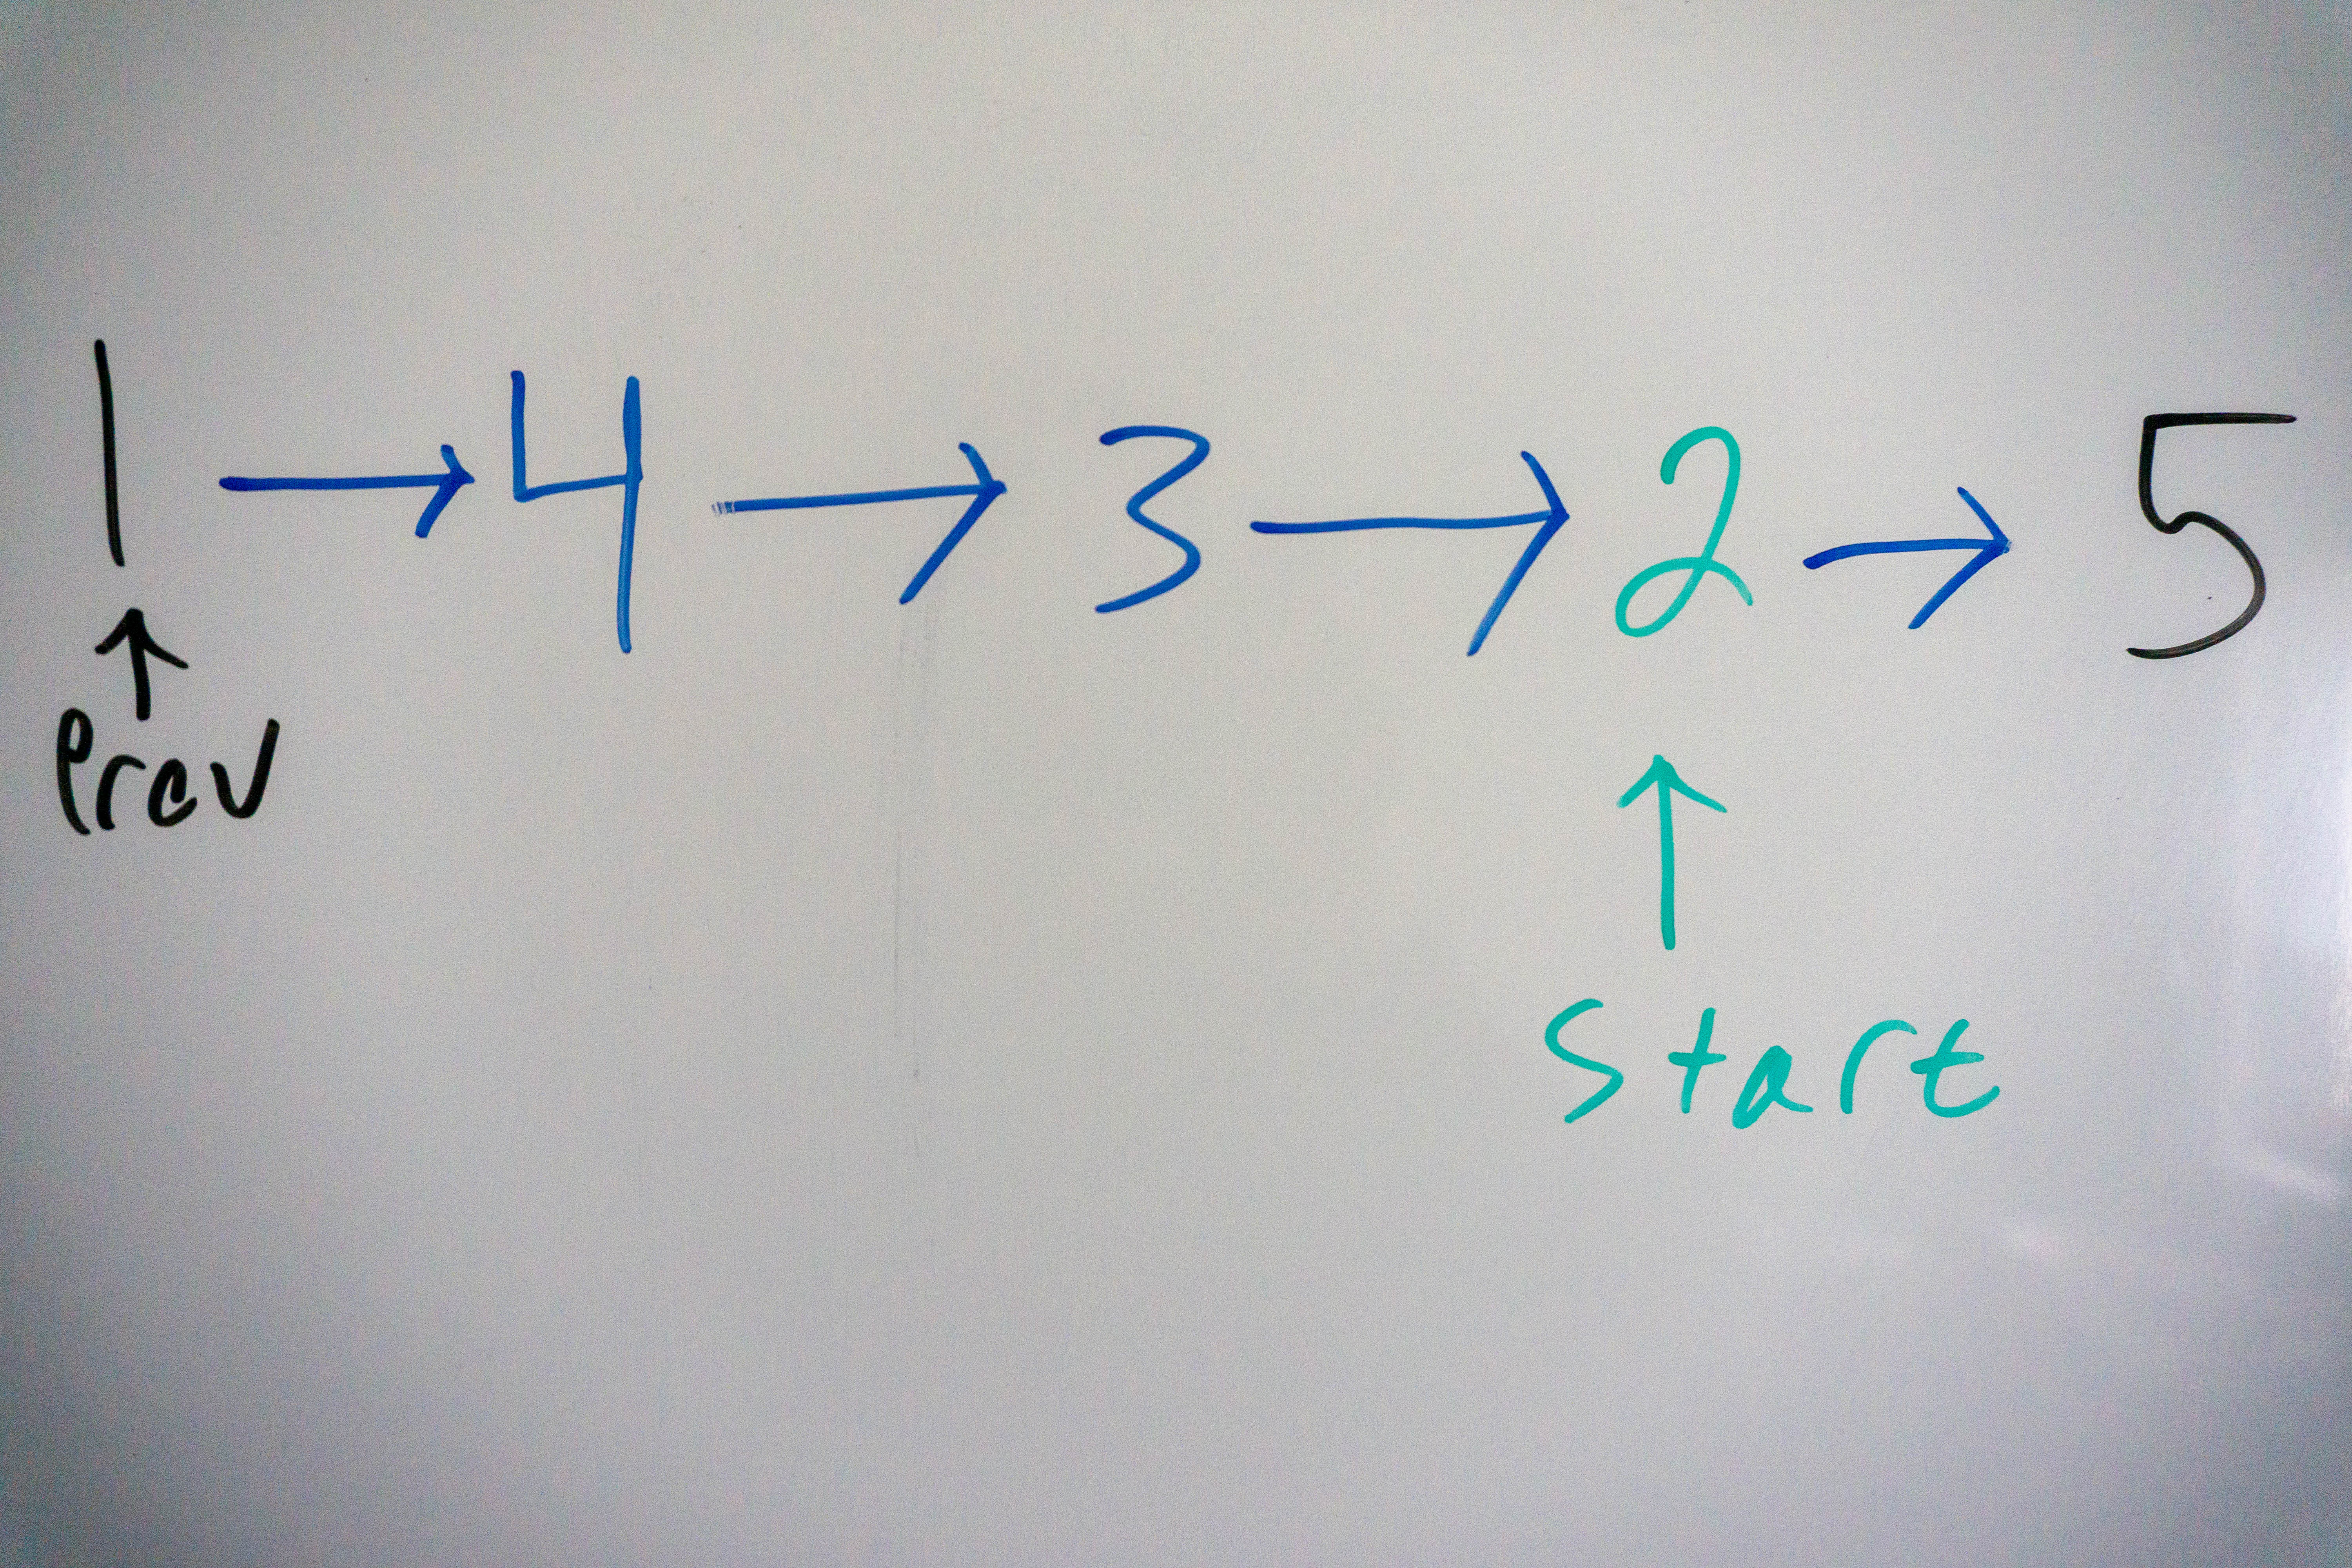 1 → 4 → 3 → 2 → 5
↑
Prev
↑
Start